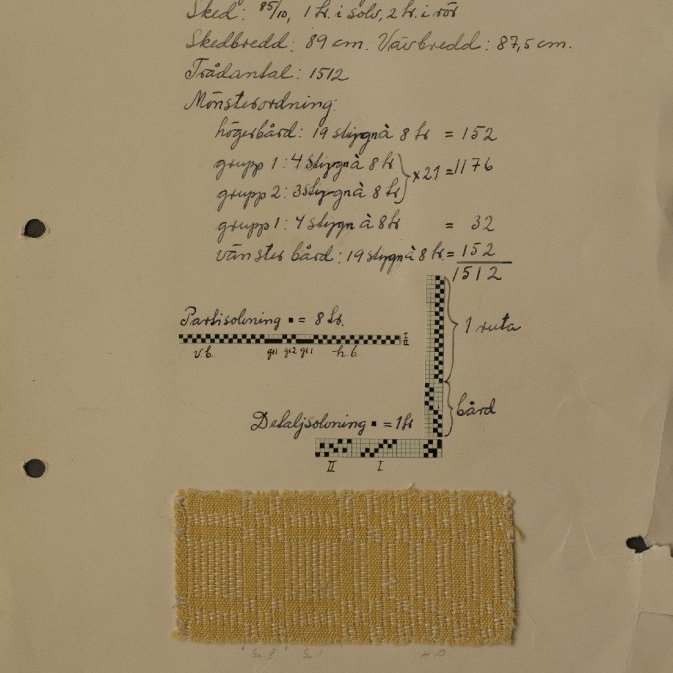 Sked: 85/10, 1 tr. i solv, 2 tr. i rör
Skedbredd: 89 cm. Vävbredd: 87,5 cm.
Trådantal: 1512
Mönsterordning:
högerbård: 19 stygn à 8 tr = 152
grupp 1: 4 stygn à 8 tr } x21 = 1176
grupp 2: 3 stygn à 8 tr
grupp 1: 4 stygn à 8 tr = 32
vänster bård: 19 stygn à 8 tr. = 152
1512
Partisolvning ▪ = 8 tr.
1 ruta
v.b. gr1 gr2 gr1 h.b.
bård
Detaljsolvning ▪ = 1 tr
II I